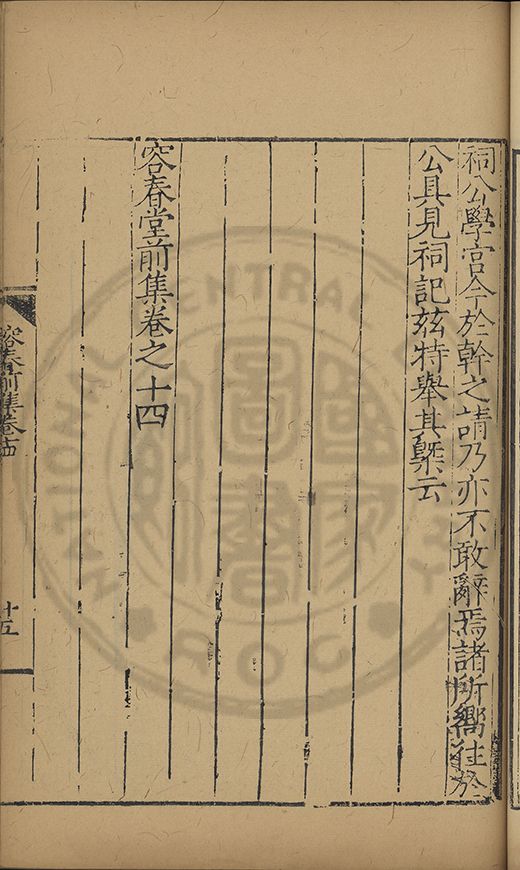 祠公學宮今於幹之請乃亦不敢辭焉諸所嚮往於
公具見祠記茲特舉其槩云
容春堂前集卷之十四
容春前集卷十四
十五